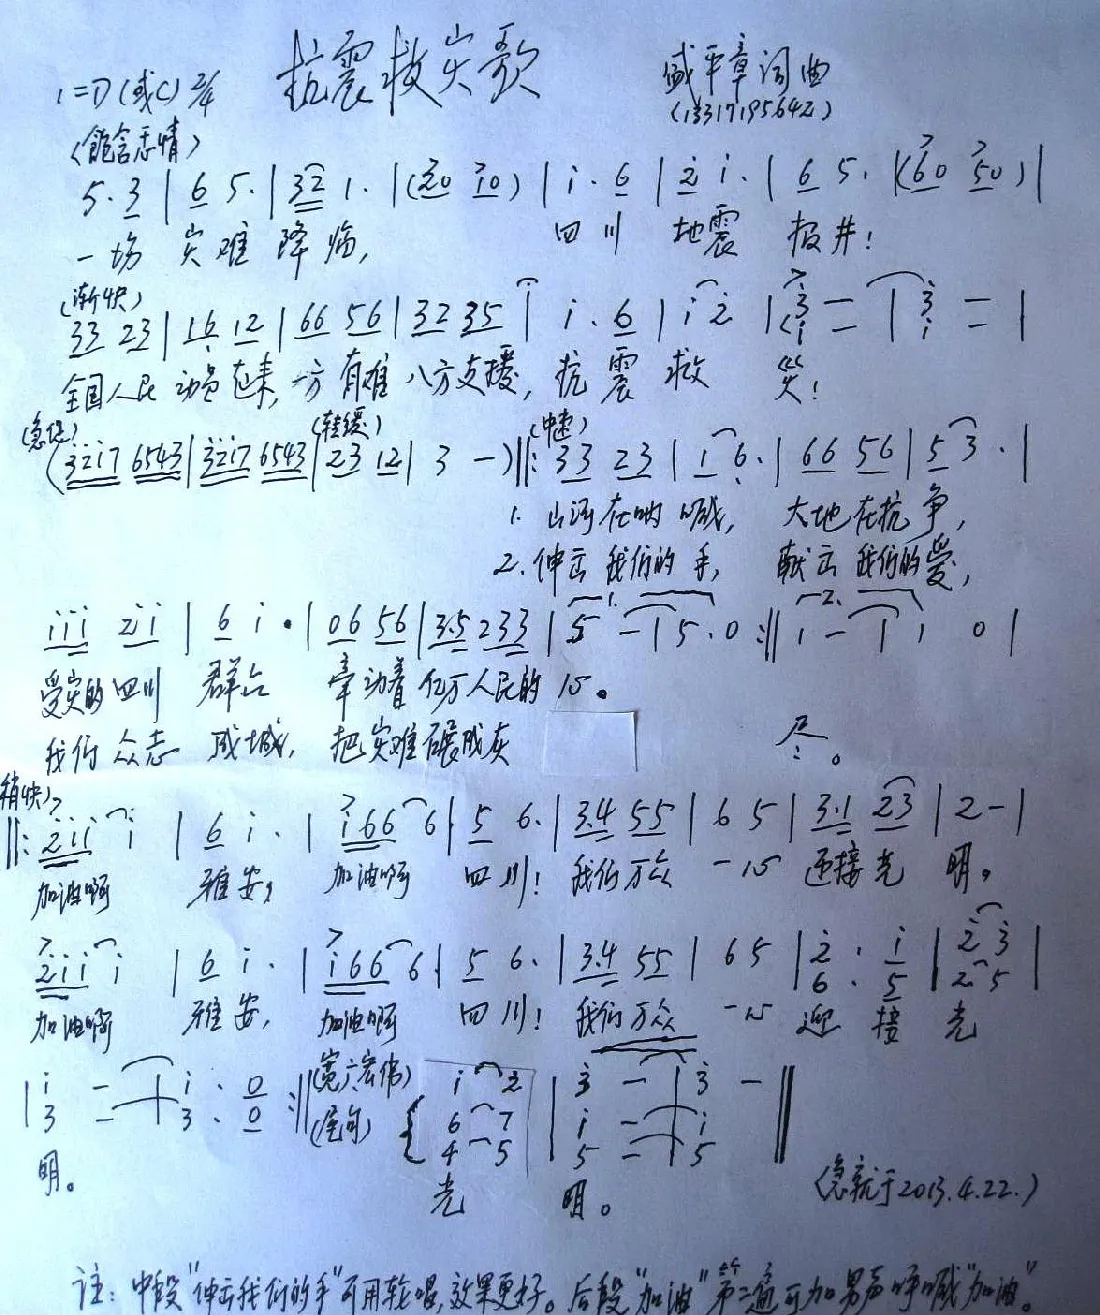 抗震救灾歌
1=D(或C) 2/4
盛平章词曲
(13317195642)
(饱含悲情)
5·3 | 6 5· | 32 1· | (20 10) | i·6 | 2 i· | 6 5· | (60 50) |
一场灾难降临, 四川地震报井!
(渐快)
33 23 | 16 12 | 66 56 | 32 35 | i·6 | i 2 | 3 — | 3 — |
1 — | 1 — |
全国人民动员起来,一方有难八方支援,抗震救灾!
(急促) (转缓) (中速)
(3217 6543 | 3217 6543 | 23 12 | 3 —) ‖: 33 23 | 1 6· | 66 56 | 5 3· |
1. 山河在呐喊, 大地在抗争,
2. 伸出我们的手, 献出我们的爱,
iii 2i | 6 i· | 06 56 | 3·5 233 | 5 — | 5·0 :‖ 1 — | 1 0 |
受灾的四川群众 牵动着亿万人民的心。
我们众志成城, 把灾难碾成灰尽。
稍快
‖: 2ii i | 6 i· | i66 6 | 5 6· | 3·4 55 | 6 5 | 3·1 23 | 2 — |
加油啊 雅安, 加油啊 四川! 我们万众一心迎接光明。
2ii i | 6 i· | i66 6 | 5 6· | 3·4 55 | 6 5 | 2 · i | 2 3 |
6 · 5 | 2 5 |
加油啊 雅安, 加油啊 四川! 我们万众一心迎接光
| i — | i · 0 :‖ (宽广宏伟) i 2 | 3 — | 3 — ‖
3 — | 3 · 0 (尾句) 6 7 | i — | i
4 5 | 5 — | 5
明。 光 明。
(急就于2013.4.22.)
注:中段"伸出我们的手"可用轮唱,效果更好。后段"加油"第二遍可加男声呼喊"加油"。